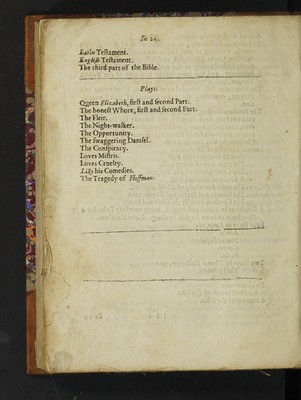 In 24.
Latin Teſtament.
Engliſh Teſtament.
The third part of the Bible.
Plays.
Queen Elizabeth, firſt and ſecond Part.
The honeſt Whore, firſt and ſecond Part.
The Heir.
The Night-walker.
The Opportunity.
The ſwaggering Damſel.
The Conſpiracy.
Loves Miſtris.
Loves Cruelty.
Lilly his Comedies.
The Tragedy of Hoffman.